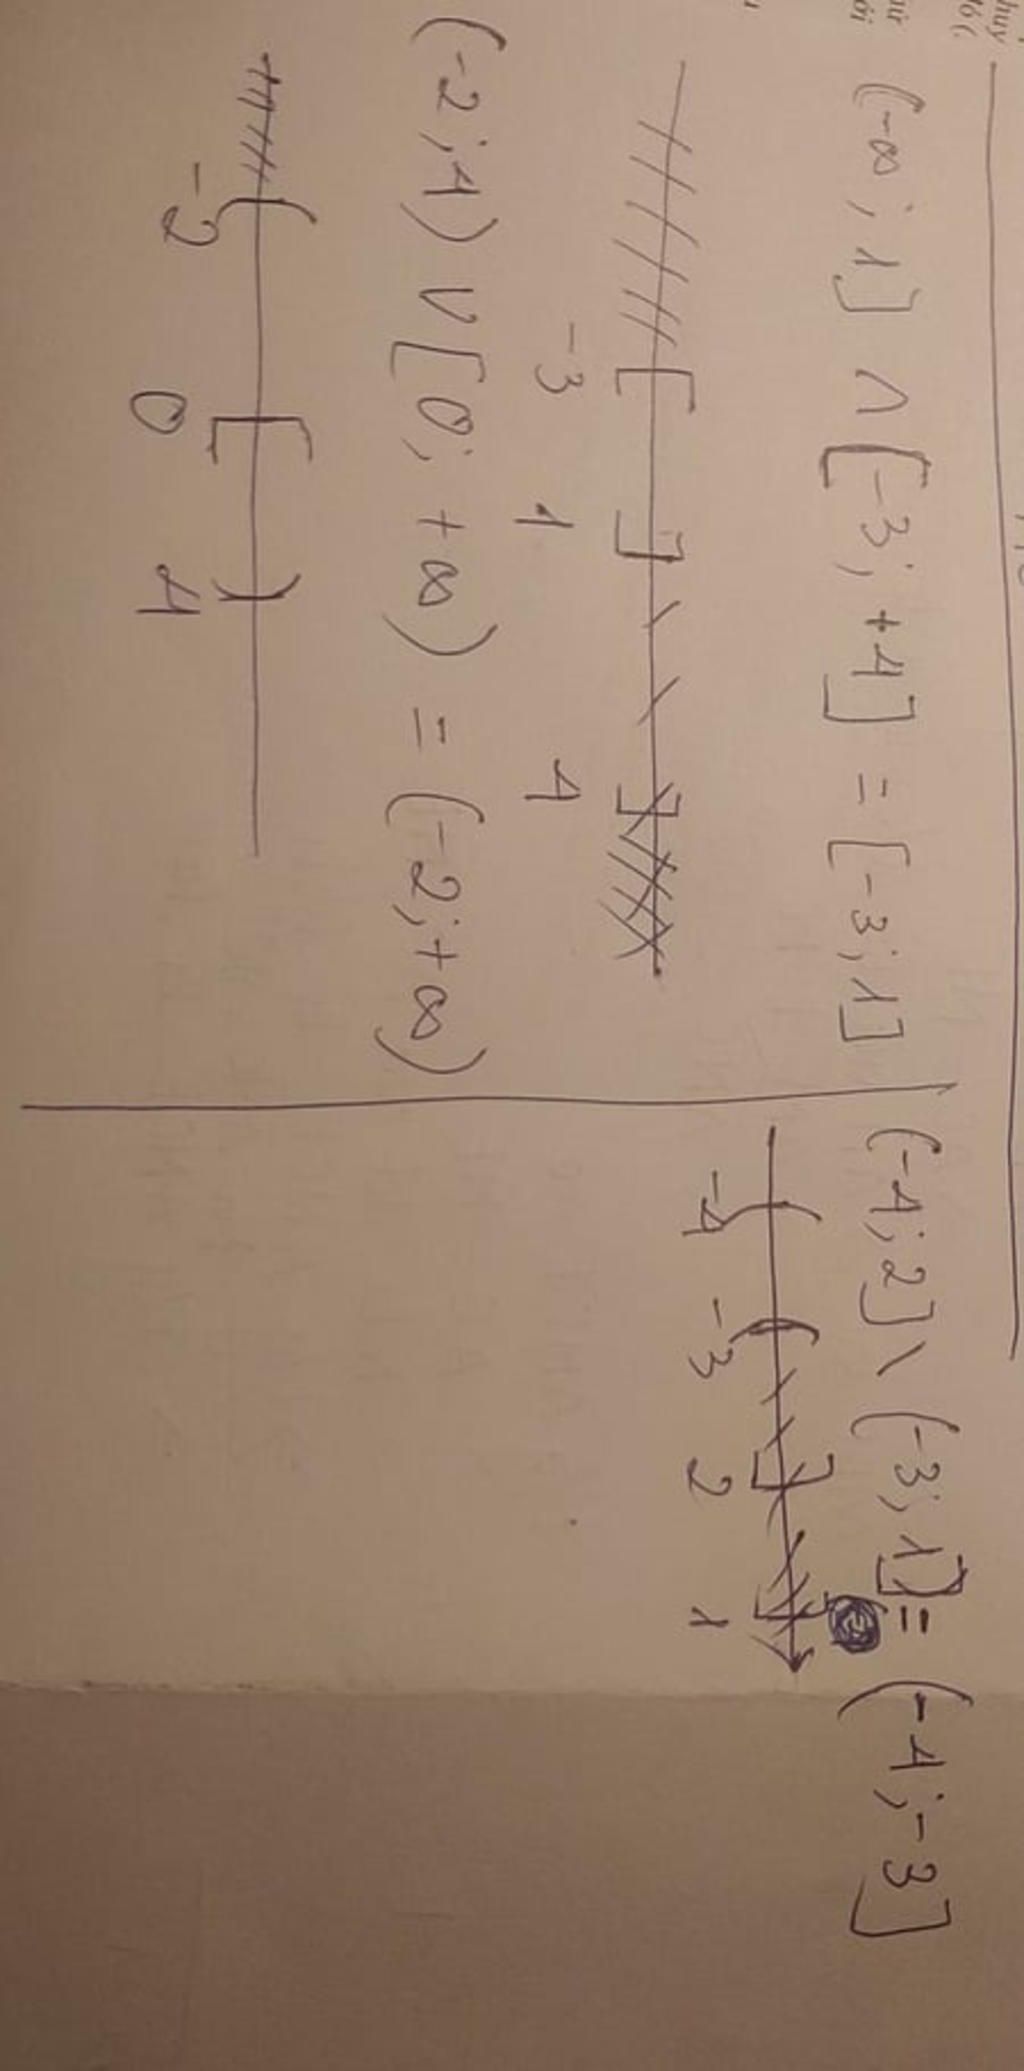 (-∞; 1] ∩ [-3; +4] = [-3; 1]
-3 1 4
(-2; 4) ∪ [0; +∞) = (-2; +∞)
-2 0 4
(-4; 2] \ (-3; 1] = (-4; -3]
-4 -3 2 1